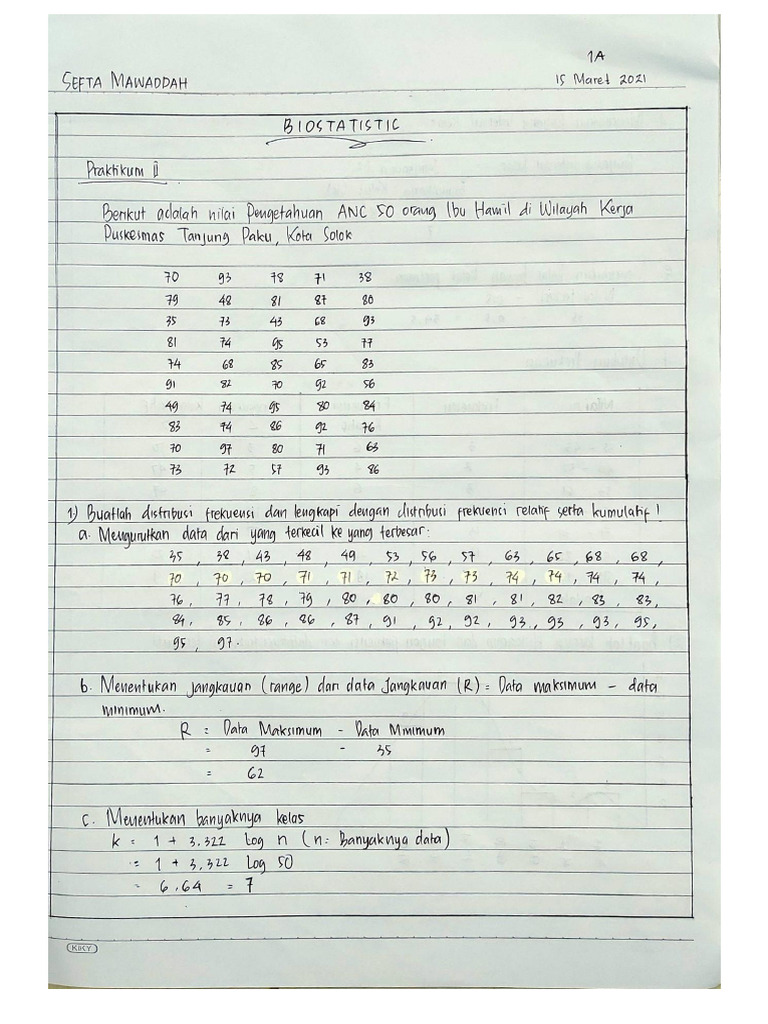 1A
SEFTA MAWADDAH
15 Maret 2021
BIOSTATISTIC
Praktikum II
Berikut adalah nilai Pengetahuan ANC 50 orang Ibu Hamil di Wilayah Kerja
Puskesmas Tanjung Paku, Kota Solok
70 93 78 71 38
79 48 81 87 80
35 73 43 68 93
81 74 95 53 77
74 68 85 65 83
91 82 70 92 56
49 74 95 80 84
83 74 86 92 76
70 97 80 71 63
73 72 57 93 86
1) Buatlah distribusi frekuensi dan lengkapi dengan distribusi frekuensi relatif serta kumulatif!
a. Mengurutkan data dari yang terkecil ke yang terbesar:
35, 38, 43, 48, 49, 53, 56, 57, 63, 65, 68, 68,
70, 70, 70, 71, 71, 72, 73, 73, 74, 74, 74, 74,
76, 77, 78, 79, 80, 80, 80, 81, 81, 82, 83, 83,
84, 85, 86, 86, 87, 91, 92, 92, 93, 93, 93, 95,
95, 97.
b. Menentukan jangkauan (range) dari data Jangkauan (R) = Data maksimum - data
minimum.
R = Data Maksimum - Data Minimum
= 97 - 35
= 62
c. Menentukan banyaknya kelas
k = 1 + 3.322 Log n (n = Banyaknya data)
= 1 + 3,322 Log 50
= 6,64 = 7
KIKY